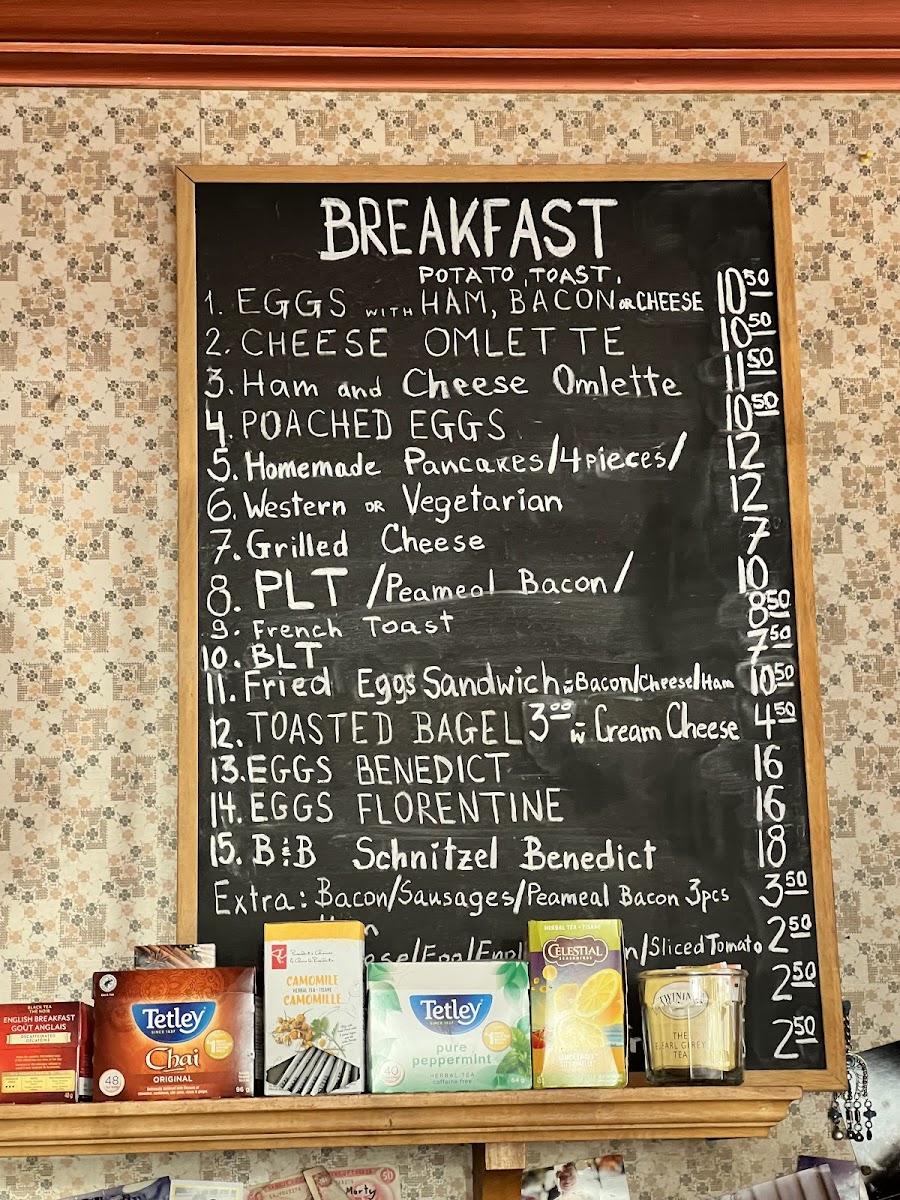 BREAKFAST
POTATO, TOAST,
1. EGGS WITH HAM, BACON OR CHEESE 10 50
2. CHEESE OMLETTE 10 50
3. Ham and Cheese Omlette 11 50
4. POACHED EGGS 10 50
5. Homemade Pancakes /4 pieces/ 12
6. Western OR Vegetarian 12
7. Grilled Cheese 7
8. PLT /Peameal Bacon/ 10
9. French Toast 8 50
10. BLT 7 50
11. Fried Eggs Sandwich w Bacon/Cheese/Ham 10 50
12. TOASTED BAGEL 3 00 w Cream Cheese 4 50
13. EGGS BENEDICT 16
14. EGGS FLORENTINE 16
15. B&B Schnitzel Benedict 18
Extra: Bacon/Sausages/Peameal Bacon 3pcs 3 50
/Sliced Tomato 2 50
2 50
2 50
BLACK TEA
THÉ NOIR
ENGLISH BREAKFAST
GOÛT ANGLAIS
DECAFFEINATED
Tetley
SINCE 1837
Chai
ORIGINAL
48
96 g
President's Choice
CAMOMILE
HERBAL TEA • TISANE
CAMOMILLE
Tetley
SINCE 1837
pure
peppermint
HERBAL TEA
caffeine free
40
64 g
HERBAL TEA • TISANE
CELESTIAL
SEASONINGS
TWININGS
THE
EARL GREY
TEA
50
Morty